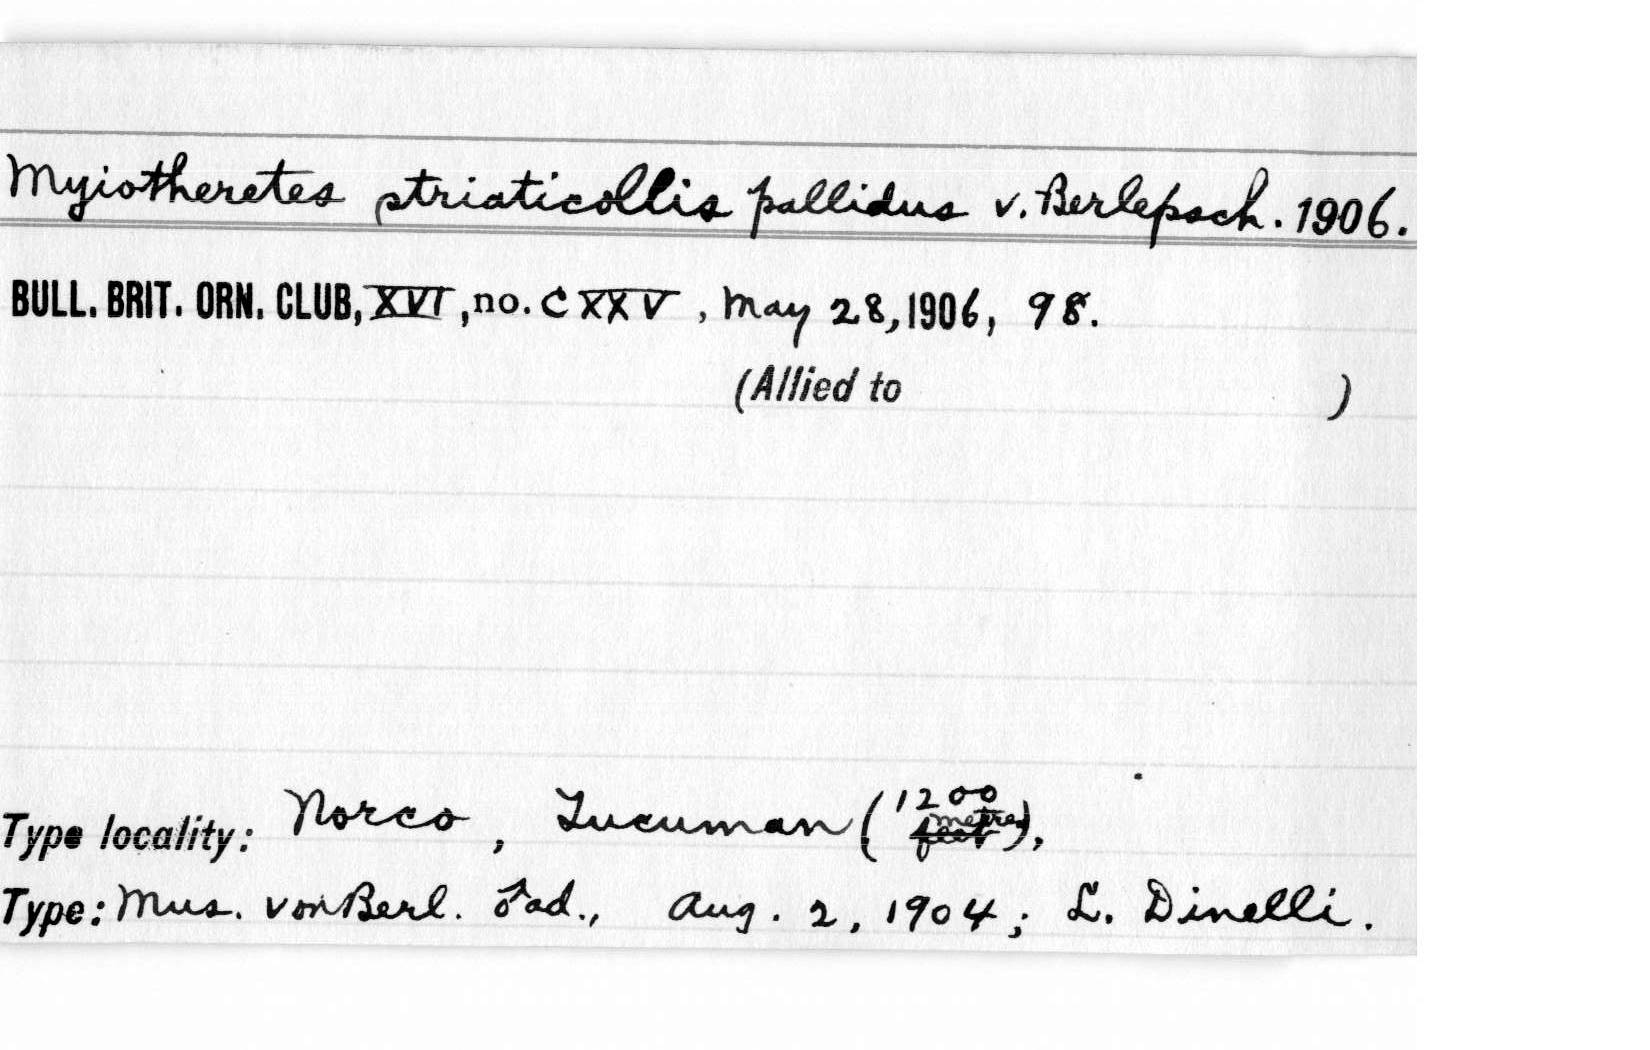 Myiotheretes striaticollis pallidus v. Berlepsch. 1906.
BULL. BRIT. ORN. CLUB, XVI, no. CXXV, May 28, 1906, 98.
(Allied to )
Type locality: Norco, Tucuman (1200 feet metres),
Type: Mus. von Berl. ♂ ad., Aug. 2, 1904; L. Dinelli.